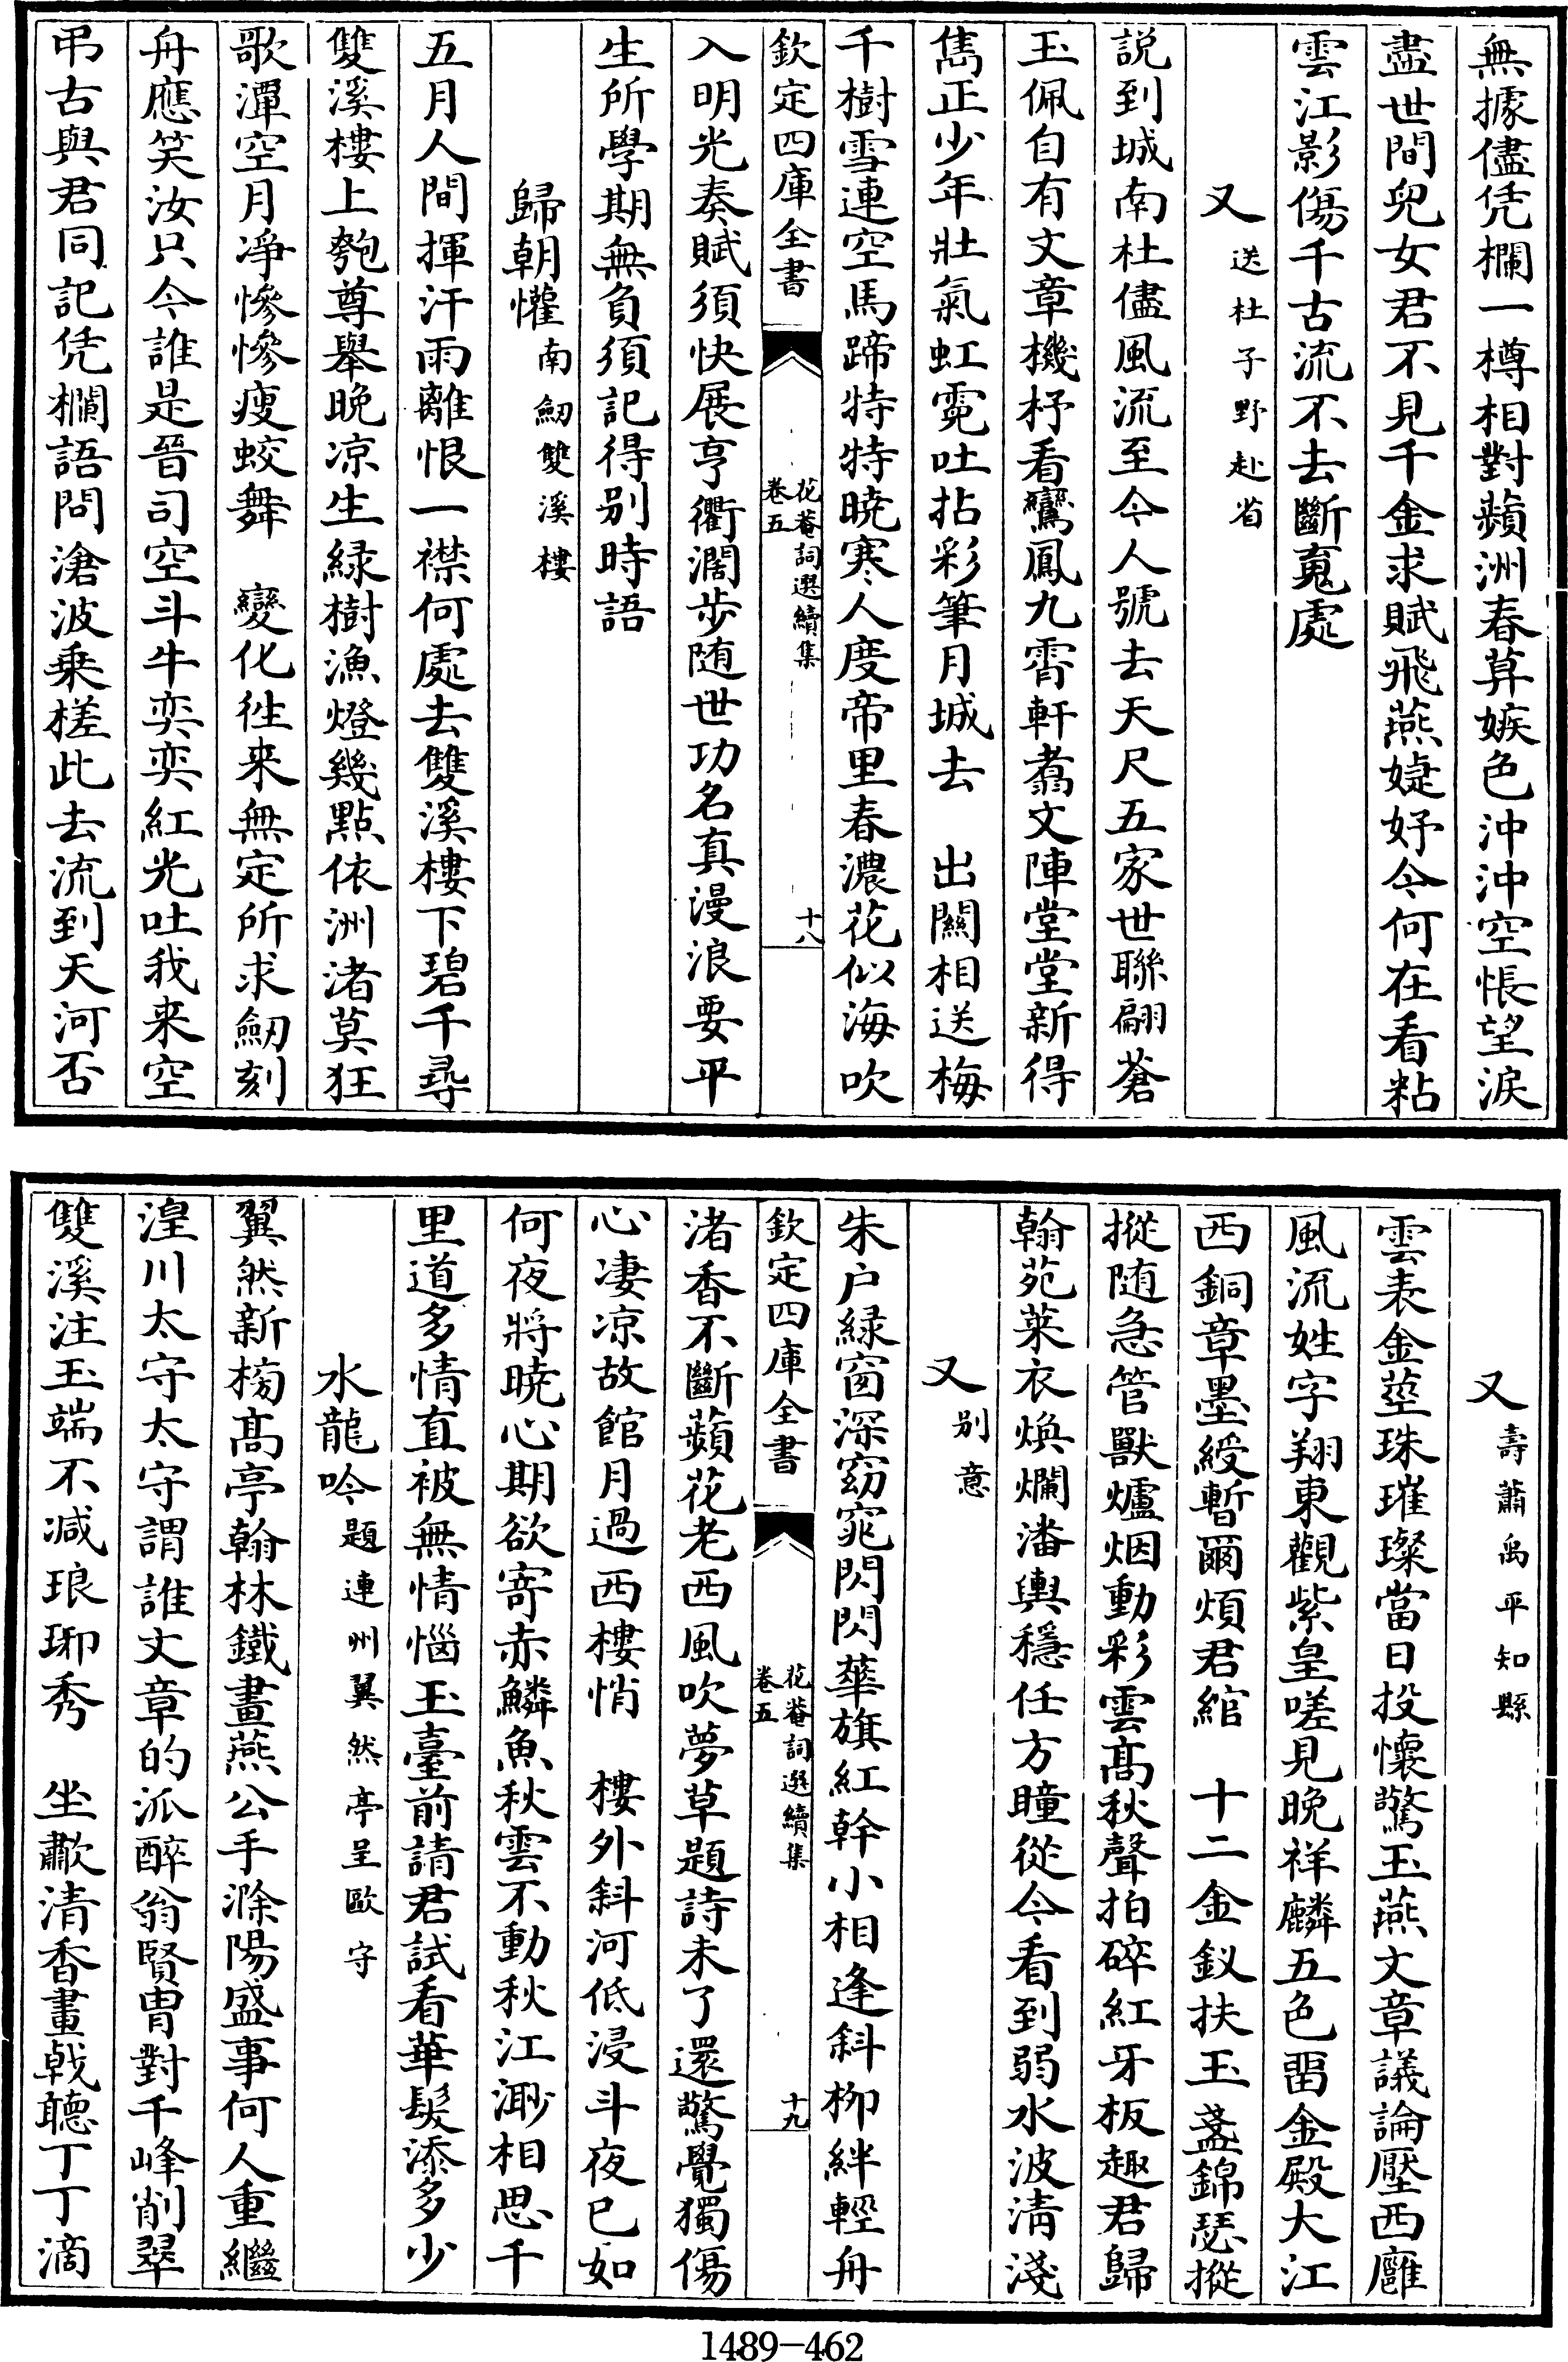 無據儘凭欄一樽相對蘋洲春草嫉色沖沖空悵望淚
盡世間兒女君不見千金求賦飛燕婕妤今何在看粘
雲江影傷千古流不去斷䰟處
又送杜子野赴省
説到城南杜儘風流至今人號去天尺五家世聯翩蒼
玉佩自有文章機杼看鸞鳳九霄軒翥文陣堂堂新得
雋正少年壯氣虹霓吐拈彩筆月城去　出關相送梅
千樹雪連空馬蹄特特曉寒人度帝里春濃花似海吹
欽定四庫全書
花菴詞選續集
卷五
十八
入明光奏賦須快展亨衢濶步随世功名真漫浪要平
生所學期無負須記得别時語
歸朝懽南劒雙溪樓
五月人間揮汗雨離恨一襟何處去雙溪樓下碧千尋
雙溪樓上匏尊舉晚凉生緑樹漁燈幾點依洲渚莫狂
歌潭空月凈慘慘瘦蛟舞　變化往来無定所求劒刻
舟應笑汝只今誰是晉司空斗牛奕奕紅光吐我来空
弔古與君同記凭欄語問滄波乗槎此去流到天河否
又壽蕭禹平知縣
雲表金莖珠璀璨當日投懷驚玉燕文章議論壓西廱
風流姓字翔東觀紫皇嗟見晚祥麟五色留金殿大江
西銅章墨綬暫爾煩君綰　十二金釵扶玉盞錦瑟摐
摐随急管獸爐烟動彩雲髙秋聲拍碎紅牙板趣君歸
翰苑萊衣煥爛潘輿穩任方瞳從今看到弱水波清淺
又别意
朱户緑窗深窈窕閃閃華旗紅幹小相逢斜柳絆輕舟
欽定四庫全書
花菴詞選續集
卷五
十九
渚香不斷蘋花老西風吹夢草題詩未了還驚覺獨傷
心凄凉故館月過西樓悄　樓外斜河低浸斗夜已如
何夜將曉心期欲寄赤鱗魚秋雲不動秋江渺相思千
里道多情直被無情惱玉臺前請君試看華髮添多少
水龍吟題連州翼然亭呈歐守
翼然新榜髙亭翰林鐵畫燕公手滁陽盛事何人重繼
湟川太守太守謂誰文章的派醉翁賢胄對千峰削翠
雙溪注玉端不减琅琊秀　坐歗清香畫戟聽丁丁滴
1489-462